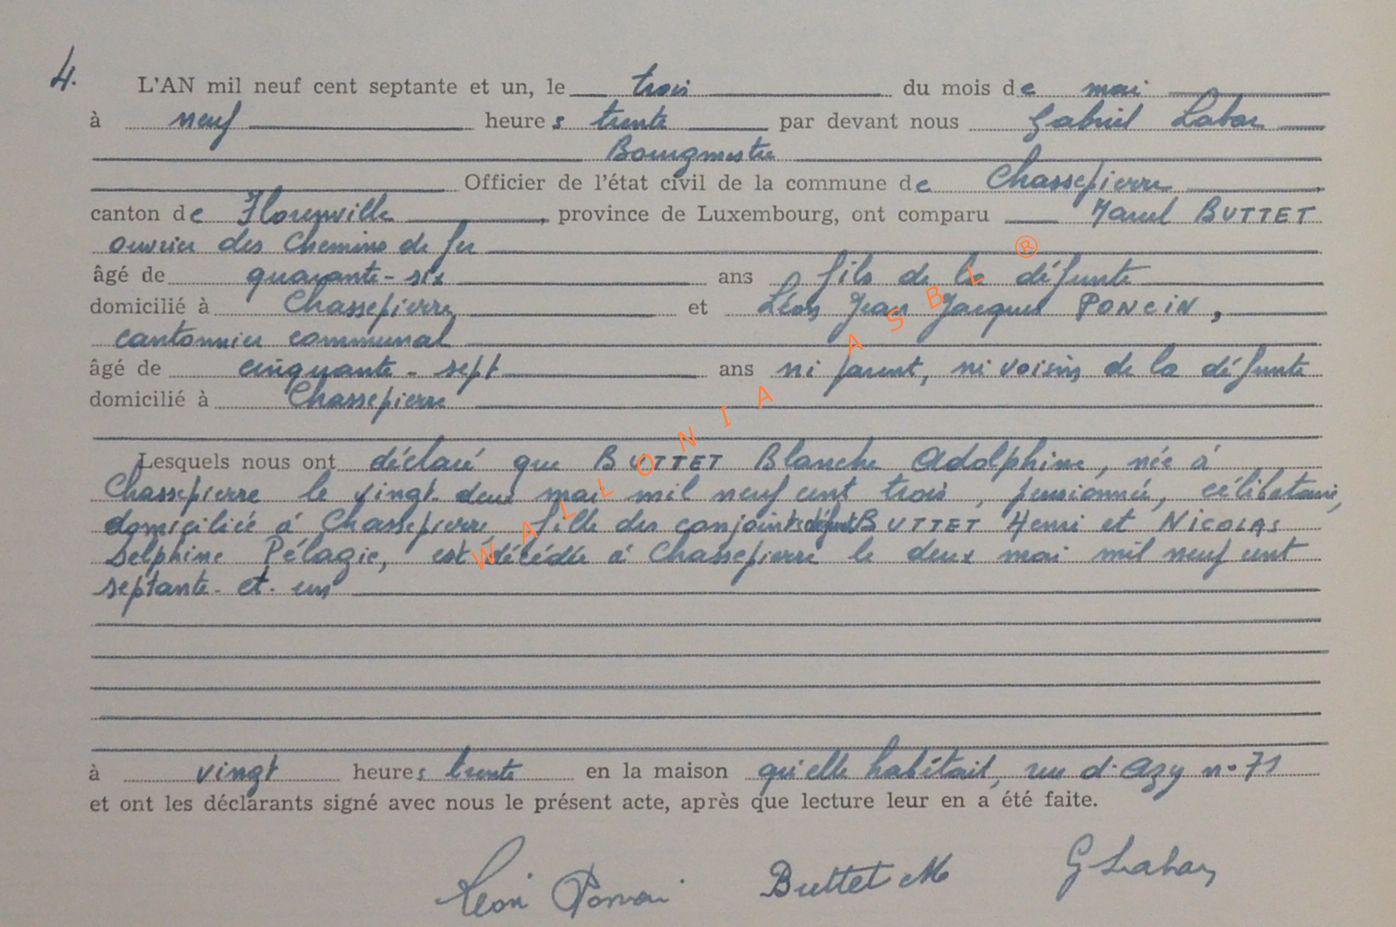 4.
L'AN mil neuf cent septante et un, le trois du mois de mai
à neuf heures trente par devant nous Gabriel Labar
Bourgmestre
Officier de l'état civil de la commune de Chassepierre,
canton de Florenville, province de Luxembourg, ont comparu Marcel BUTTET
ouvrier des Chemins de fer
âgé de quarante-six ans fils de la défunte
domicilié à Chassepierre, et Léon Jean Jacques PONCIN,
cantonnier communal
âgé de cinquante-sept ans ni parent, ni voisin de la défunte
domicilié à Chassepierre
Lesquels nous ont déclaré que BUTTET Blanche Adolphine, née à
Chassepierre le vingt-deux mai mil neuf cent trois, pensionnée, célibataire,
domiciliée à Chassepierre, fille des conjoints défunts BUTTET Henri et NICOLAS
Delphine Pélagie, est décédée à Chassepierre le deux mai mil neuf cent
septante-et-un
à vingt heures trente en la maison qu'elle habitait, rue d'Azy n° 71
et ont les déclarants signé avec nous le présent acte, après que lecture leur en a été faite.
Léon Poncin Buttet M G Labar
WALLONIA ASBL ®